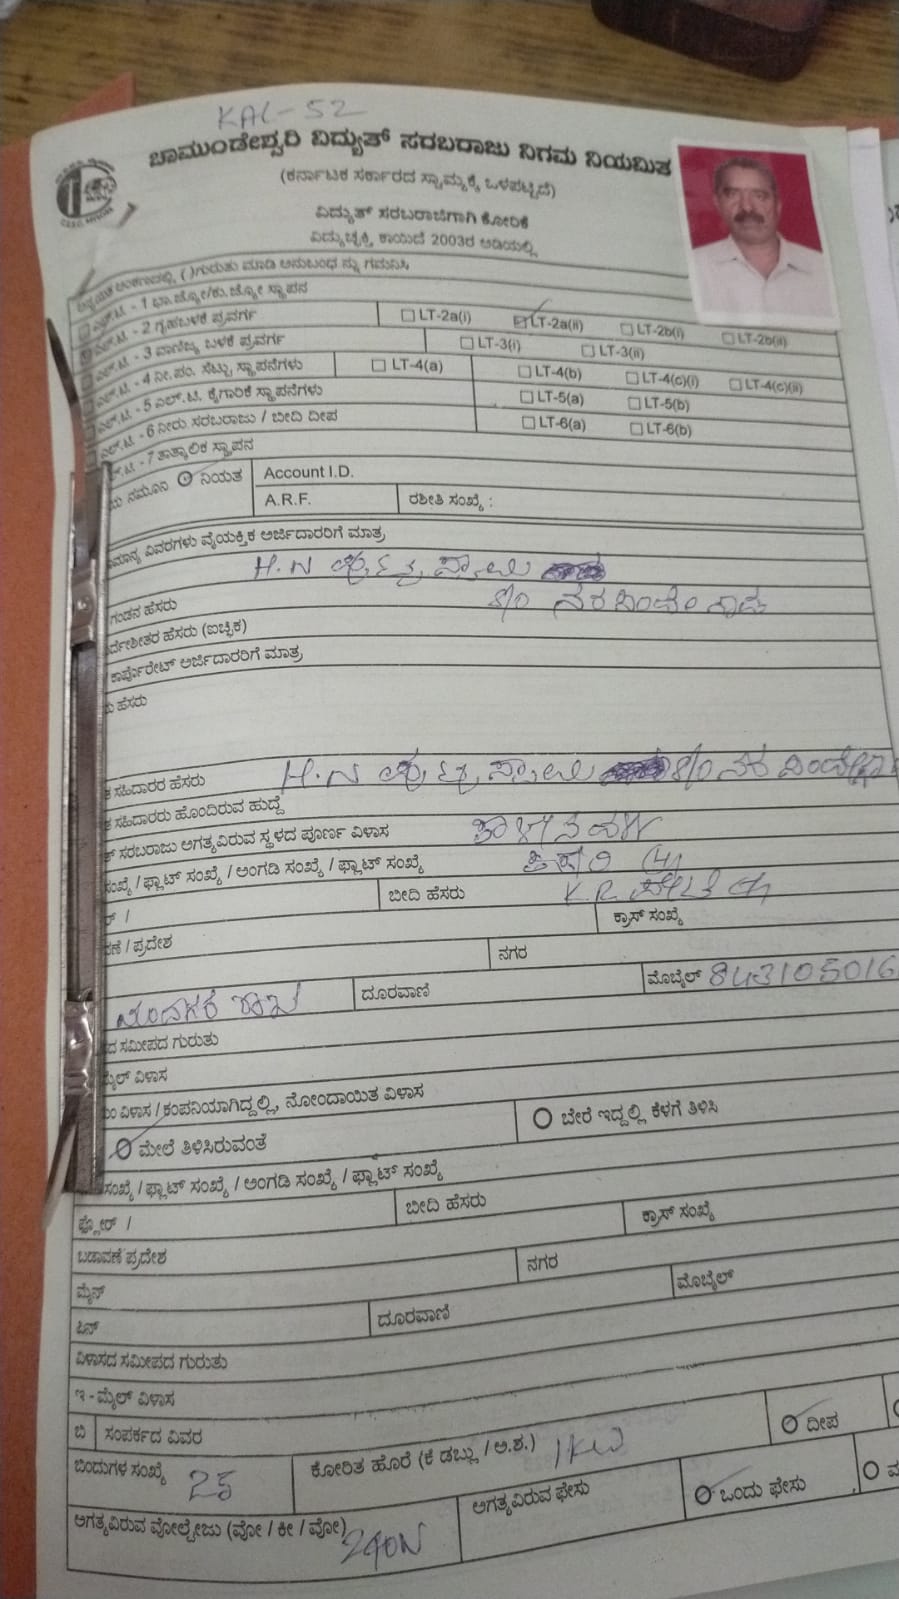 KAL-52
ಚಾಮುಂಡೇಶ್ವರಿ ವಿದ್ಯುತ್ ಸರಬರಾಜು ನಿಗಮ ನಿಯಮಿತ
(ಕರ್ನಾಟಕ ಸರ್ಕಾರದ ಸ್ವಾಮ್ಯಕ್ಕೆ ಒಳಪಟ್ಟಿದೆ)
ವಿದ್ಯುತ್ ಸರಬರಾಜಿಗಾಗಿ ಕೋರಿಕೆ
ವಿದ್ಯುಚ್ಛಕ್ತಿ ಕಾಯಿದೆ 2003ರ ಅಡಿಯಲ್ಲಿ
ಅಂಕಣದಲ್ಲಿ, ( )ಗುರುತು ಮಾಡಿ ಅನುಬಂಧ ನ್ನು ಗಮನಿಸಿ
ಎಲ್.ಟಿ. - 1 ಭಾ.ಜ್ಯೋ/ಕು.ಜ್ಯೋ ಸ್ಥಾಪನ
ಎಲ್.ಟಿ. - 2 ಗೃಹಬಳಕೆ ಪ್ರವರ್ಗ LT-2a(i) LT-2a(ii) LT-2b(i) LT-2b(ii)
ಎಲ್.ಟಿ. - 3 ವಾಣಿಜ್ಯ ಬಳಕೆ ಪ್ರವರ್ಗ LT-3(i) LT-3(ii)
ಎಲ್.ಟಿ. - 4 ನೀ.ಪಂ. ಸೆಟ್ಟು ಸ್ಥಾಪನೆಗಳು LT-4(a) LT-4(b) LT-4(c)(i) LT-4(c)(ii)
ಎಲ್.ಟಿ. - 5 ಎಲ್.ಟಿ. ಕೈಗಾರಿಕೆ ಸ್ಥಾಪನೆಗಳು LT-5(a) LT-5(b)
ಎಲ್.ಟಿ. - 6 ನೀರು ಸರಬರಾಜು / ಬೀದಿ ದೀಪ LT-6(a) LT-6(b)
ಲ್.ಟಿ. - 7 ತಾತ್ಕಾಲಿಕ ಸ್ಥಾಪನ
ನಮೂನಿ ನಿಯತ Account I.D.
A.R.F. ರಶೀತಿ ಸಂಖ್ಯೆ :
ಮಾನ್ಯ ವಿವರಗಳು ವೈಯಕ್ತಿಕ ಅರ್ಜಿದಾರರಿಗೆ ಮಾತ್ರ
H.N
ಗಂಡನ ಹೆಸರು S/O
ರ್ದೇಶಿತರ ಹೆಸರು (ಐಚ್ಛಿಕ)
ಕಾರ್ಪೊರೇಟ್ ಅರ್ಜಿದಾರರಿಗೆ ಮಾತ್ರ
ಹೆಸರು
ಸಹಿದಾರರ ಹೆಸರು H.N S/O
ಸಹಿದಾರರು ಹೊಂದಿರುವ ಹುದ್ದೆ
ಸರಬರಾಜು ಅಗತ್ಯವಿರುವ ಸ್ಥಳದ ಪೂರ್ಣ ವಿಳಾಸ
ಸಂಖ್ಯೆ / ಫ್ಲಾಟ್ ಸಂಖ್ಯೆ / ಅಂಗಡಿ ಸಂಖ್ಯೆ / ಫ್ಲಾಟ್ ಸಂಖ್ಯೆ
ರ್ / ಬೀದಿ ಹೆಸರು K.R. ಪೇಟೆ
ವಣೆ / ಪ್ರದೇಶ ಕ್ರಾಸ್ ಸಂಖ್ಯೆ
ನಗರ
ದೂರವಾಣಿ ಮೊಬೈಲ್ 843105016
ದ ಸಮೀಪದ ಗುರುತು
ಮೈಲ್ ವಿಳಾಸ
ವಿಳಾಸ / ಕಂಪನಿಯಾಗಿದ್ದಲ್ಲಿ, ನೋಂದಾಯಿತ ವಿಳಾಸ
ಮೇಲೆ ತಿಳಿಸಿರುವಂತೆ ಬೇರೆ ಇದ್ದಲ್ಲಿ ಕೆಳಗೆ ತಿಳಿಸಿ
ಸಂಖ್ಯೆ / ಫ್ಲಾಟ್ ಸಂಖ್ಯೆ / ಅಂಗಡಿ ಸಂಖ್ಯೆ / ಫ್ಲಾಟ್ ಸಂಖ್ಯೆ
ಫ್ಲೋರ್ / ಬೀದಿ ಹೆಸರು
ಬಡಾವಣೆ ಪ್ರದೇಶ ಕ್ರಾಸ್ ಸಂಖ್ಯೆ
ಮೈನ್ ನಗರ
ಪಿನ್ ದೂರವಾಣಿ ಮೊಬೈಲ್
ವಿಳಾಸದ ಸಮೀಪದ ಗುರುತು
ಇ - ಮೈಲ್ ವಿಳಾಸ
ಬಿ ಸಂಪರ್ಕದ ವಿವರ
ಬಿಂದುಗಳ ಸಂಖ್ಯೆ 25 ಕೋರಿತ ಹೊರೆ (ಕೆ ಡಬ್ಲು / ಅ.ಶ.) 1KW ದೀಪ
ಅಗತ್ಯವಿರುವ ವೋಲ್ಟೇಜು (ವೋ / ಕೀ / ವೋ) 240V ಅಗತ್ಯವಿರುವ ಫೇಸು ಒಂದು ಫೇಸು